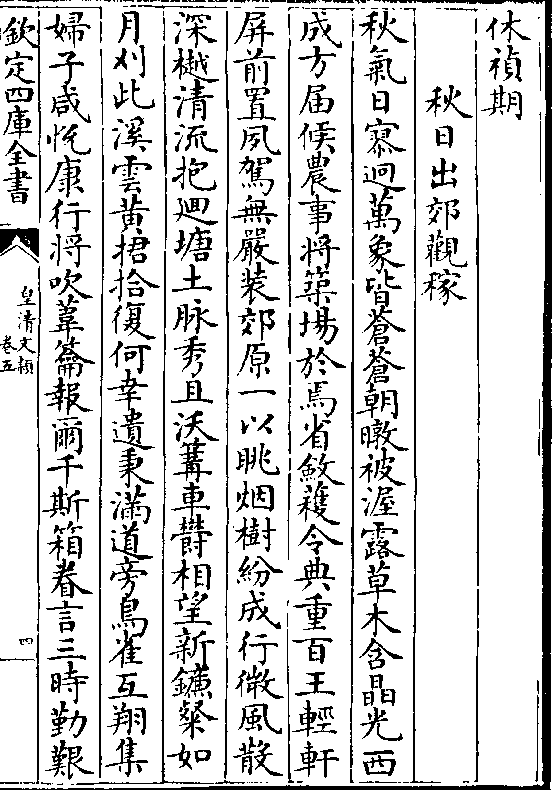 休禎期
秋日出郊觀稼
秋氣日寥迥萬象皆蒼蒼朝暾被渥露草木含晶光西
成方届候農事將築場於焉省斂穫令典重百王輕軒
屏前置夙駕無嚴装郊原一以眺烟樹紛成行微風散
深樾清流抱迴塘土脉秀且沃篝車欝相望新鐮粲如
月刈此溪雲黄捃拾復何幸遺秉滿道旁鳥雀互翔集
婦子咸忻康行将吹葦籥報爾千斯箱眷言三時勤艱
欽定四庫全書
皇清文穎
卷五
四